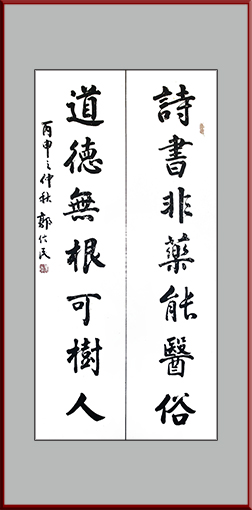 詩書非藥能醫俗
道德無根可樹人
丙申之仲秋 郭仁民